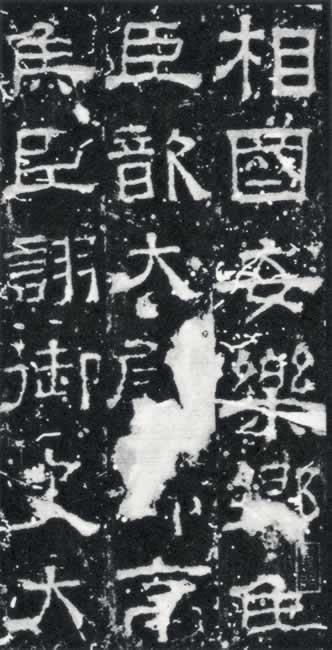 相國安樂鄉侯
臣歆大尉亭
侯臣詡御史大